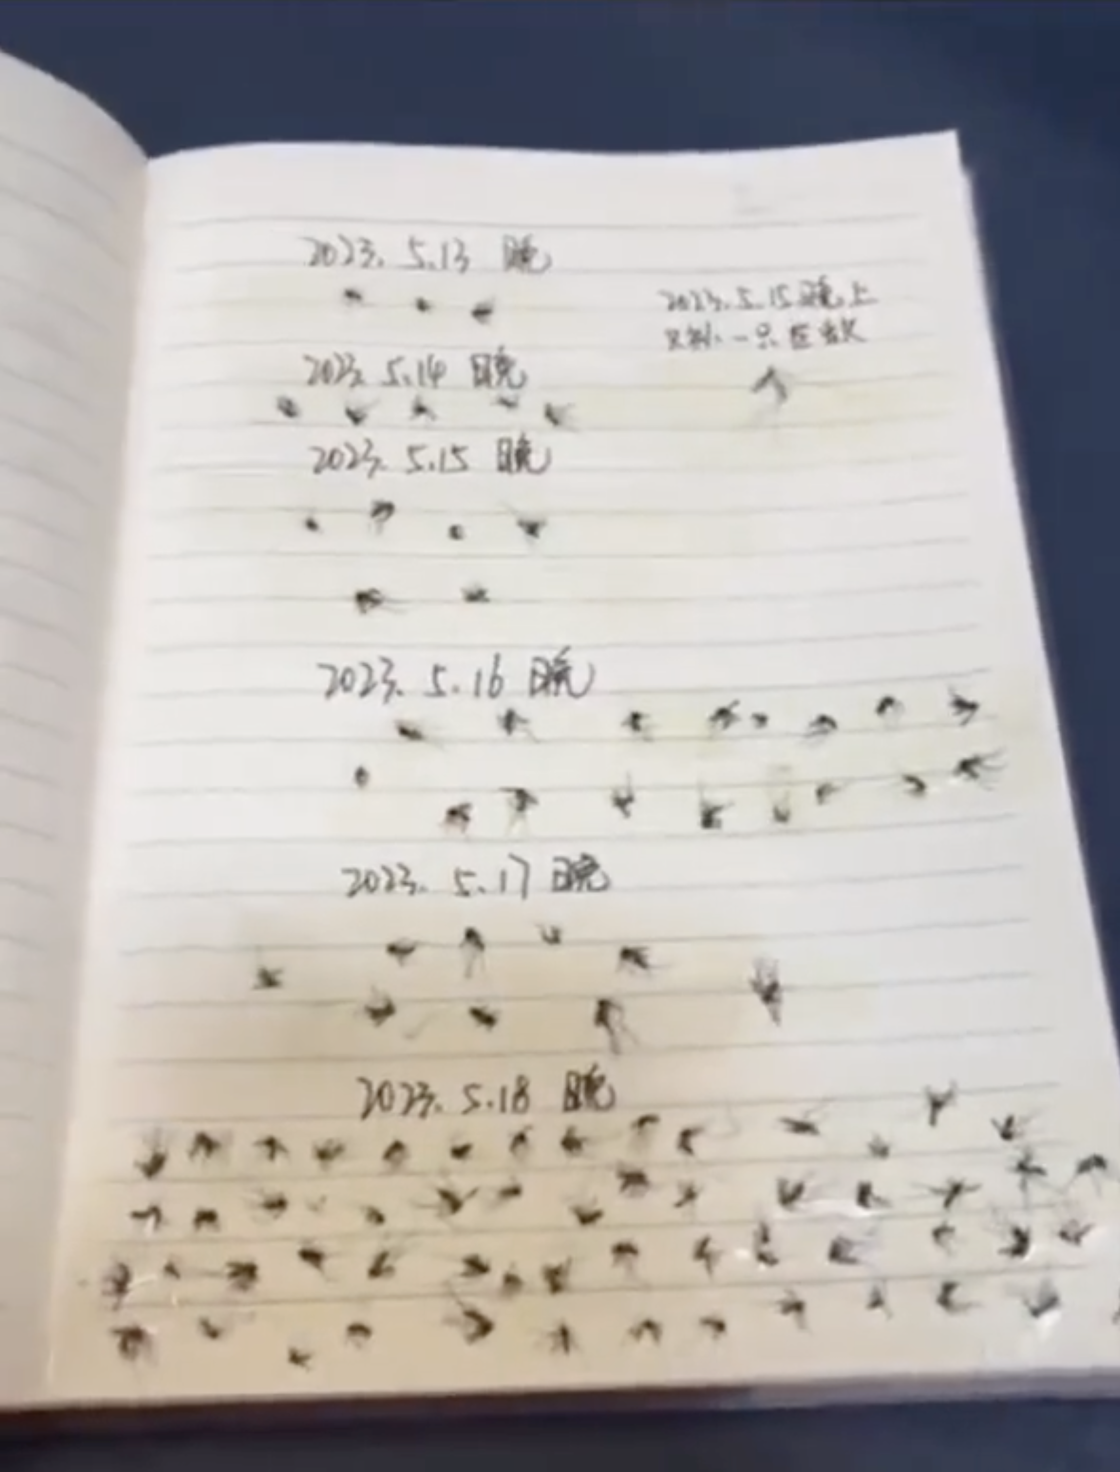 2023. 5.13 晚
2023.5.15晚上
一只在
2023. 5.14 晚
2023. 5.15 晚
2023. 5.16 晚
2023. 5.17 晚
2023. 5.18 晚